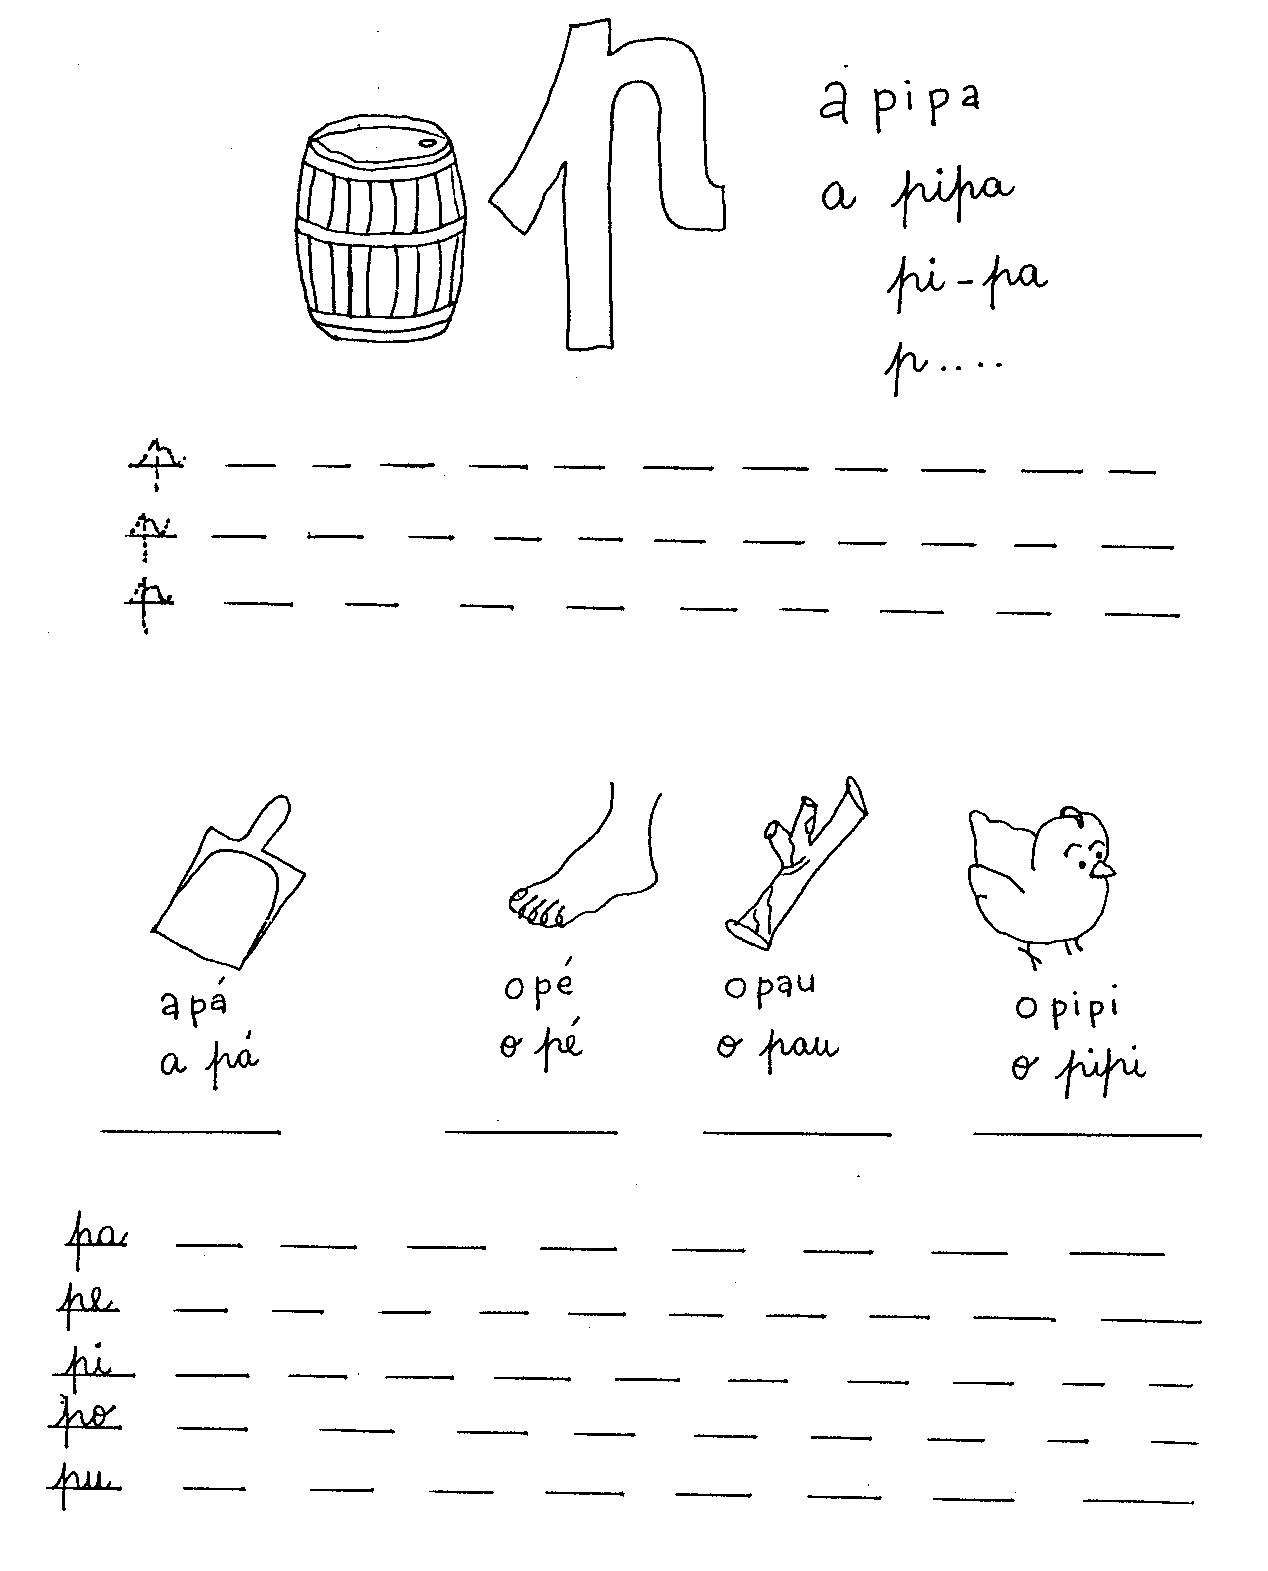 p
a pipa
a pipa
pi-pa
p....
p
p
p
a pá
a pá
o pé
o pé
o pau
o pau
o pipi
o pipi
pa
pe
pi
po
pu